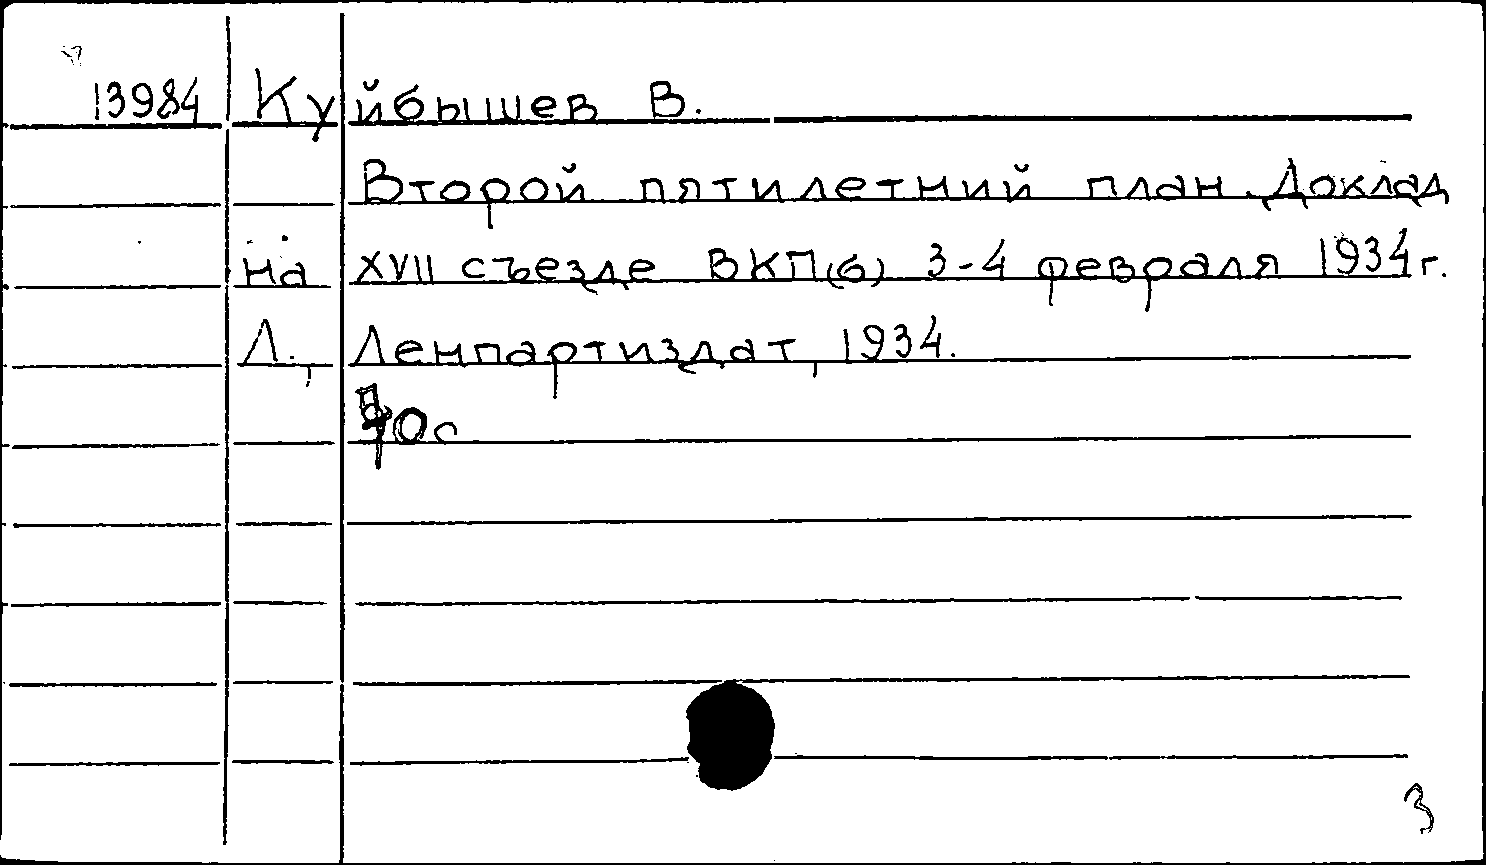 13984 Куйбышев В.
Второй пятилетний план. Доклад
на XVII съезде ВКП(б) 3-4 февраля 1934г.
Л., Ленпартиздат, 1934.
3